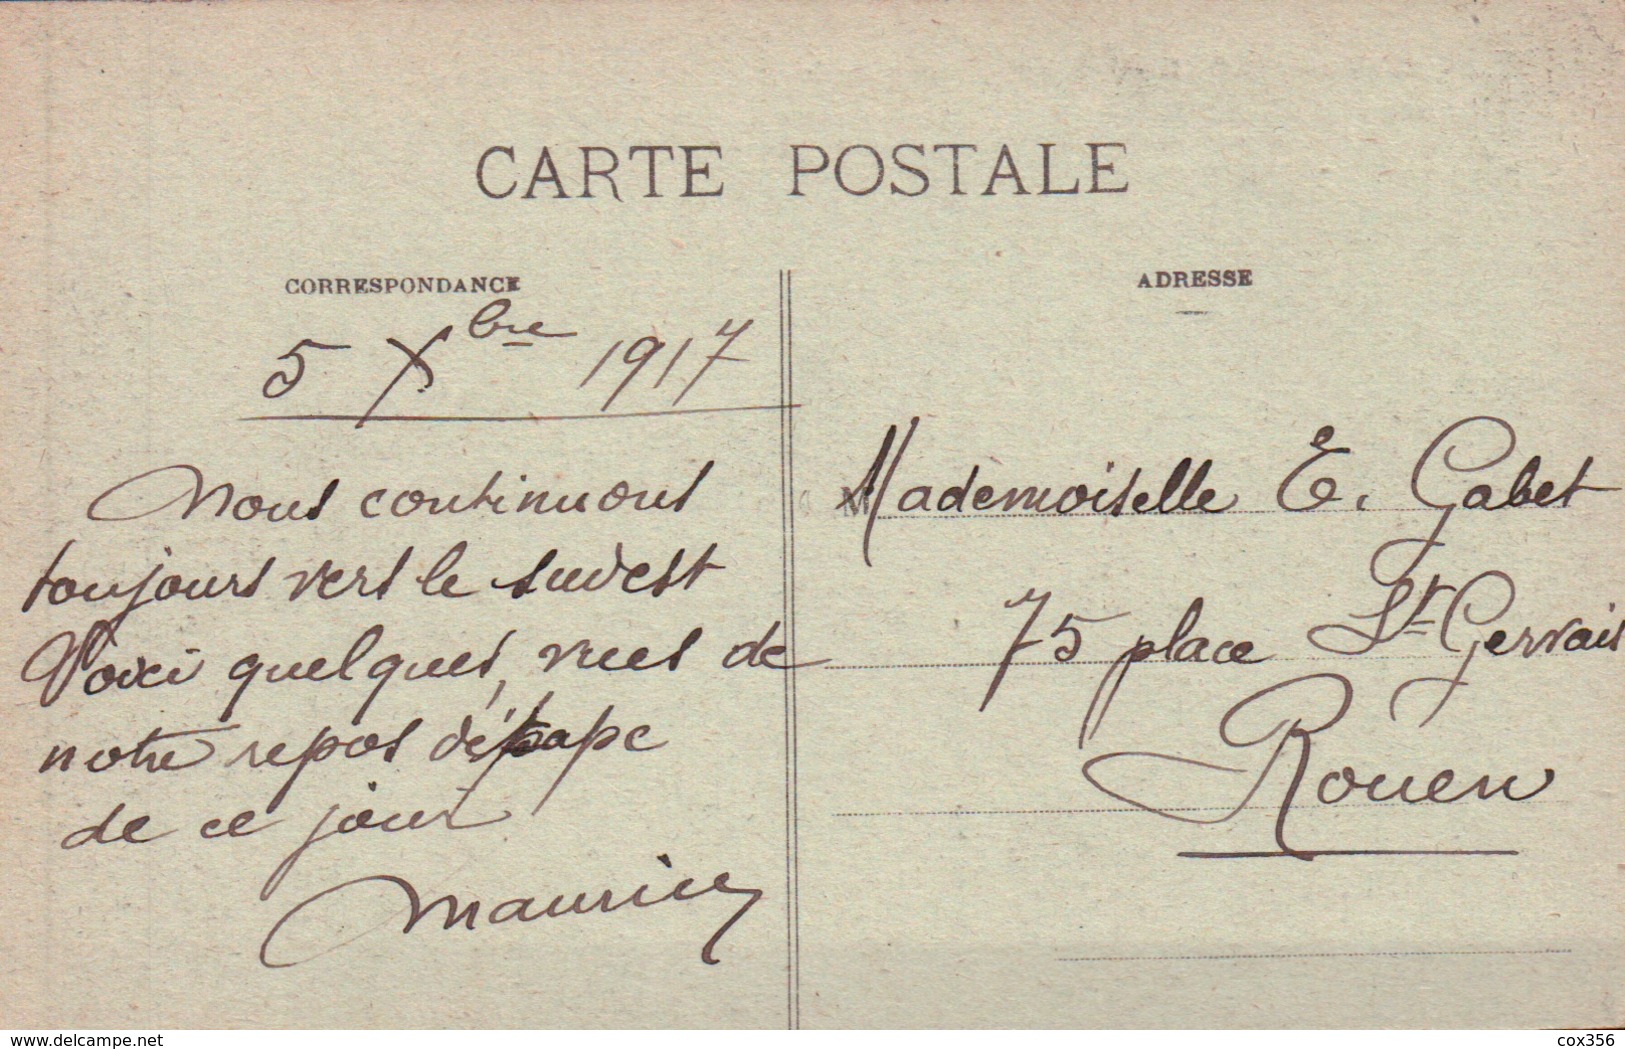 CARTE POSTALE
CORRESPONDANCE
5 Xbre 1917
Nous continuons
toujours vers le sudest
Voici quelques vues de
notre repos
de ce jour
Maurice
ADRESSE
Mademoiselle E. Gabet
75 place St Gervais
Rouen
www.delcampe.net
cox356